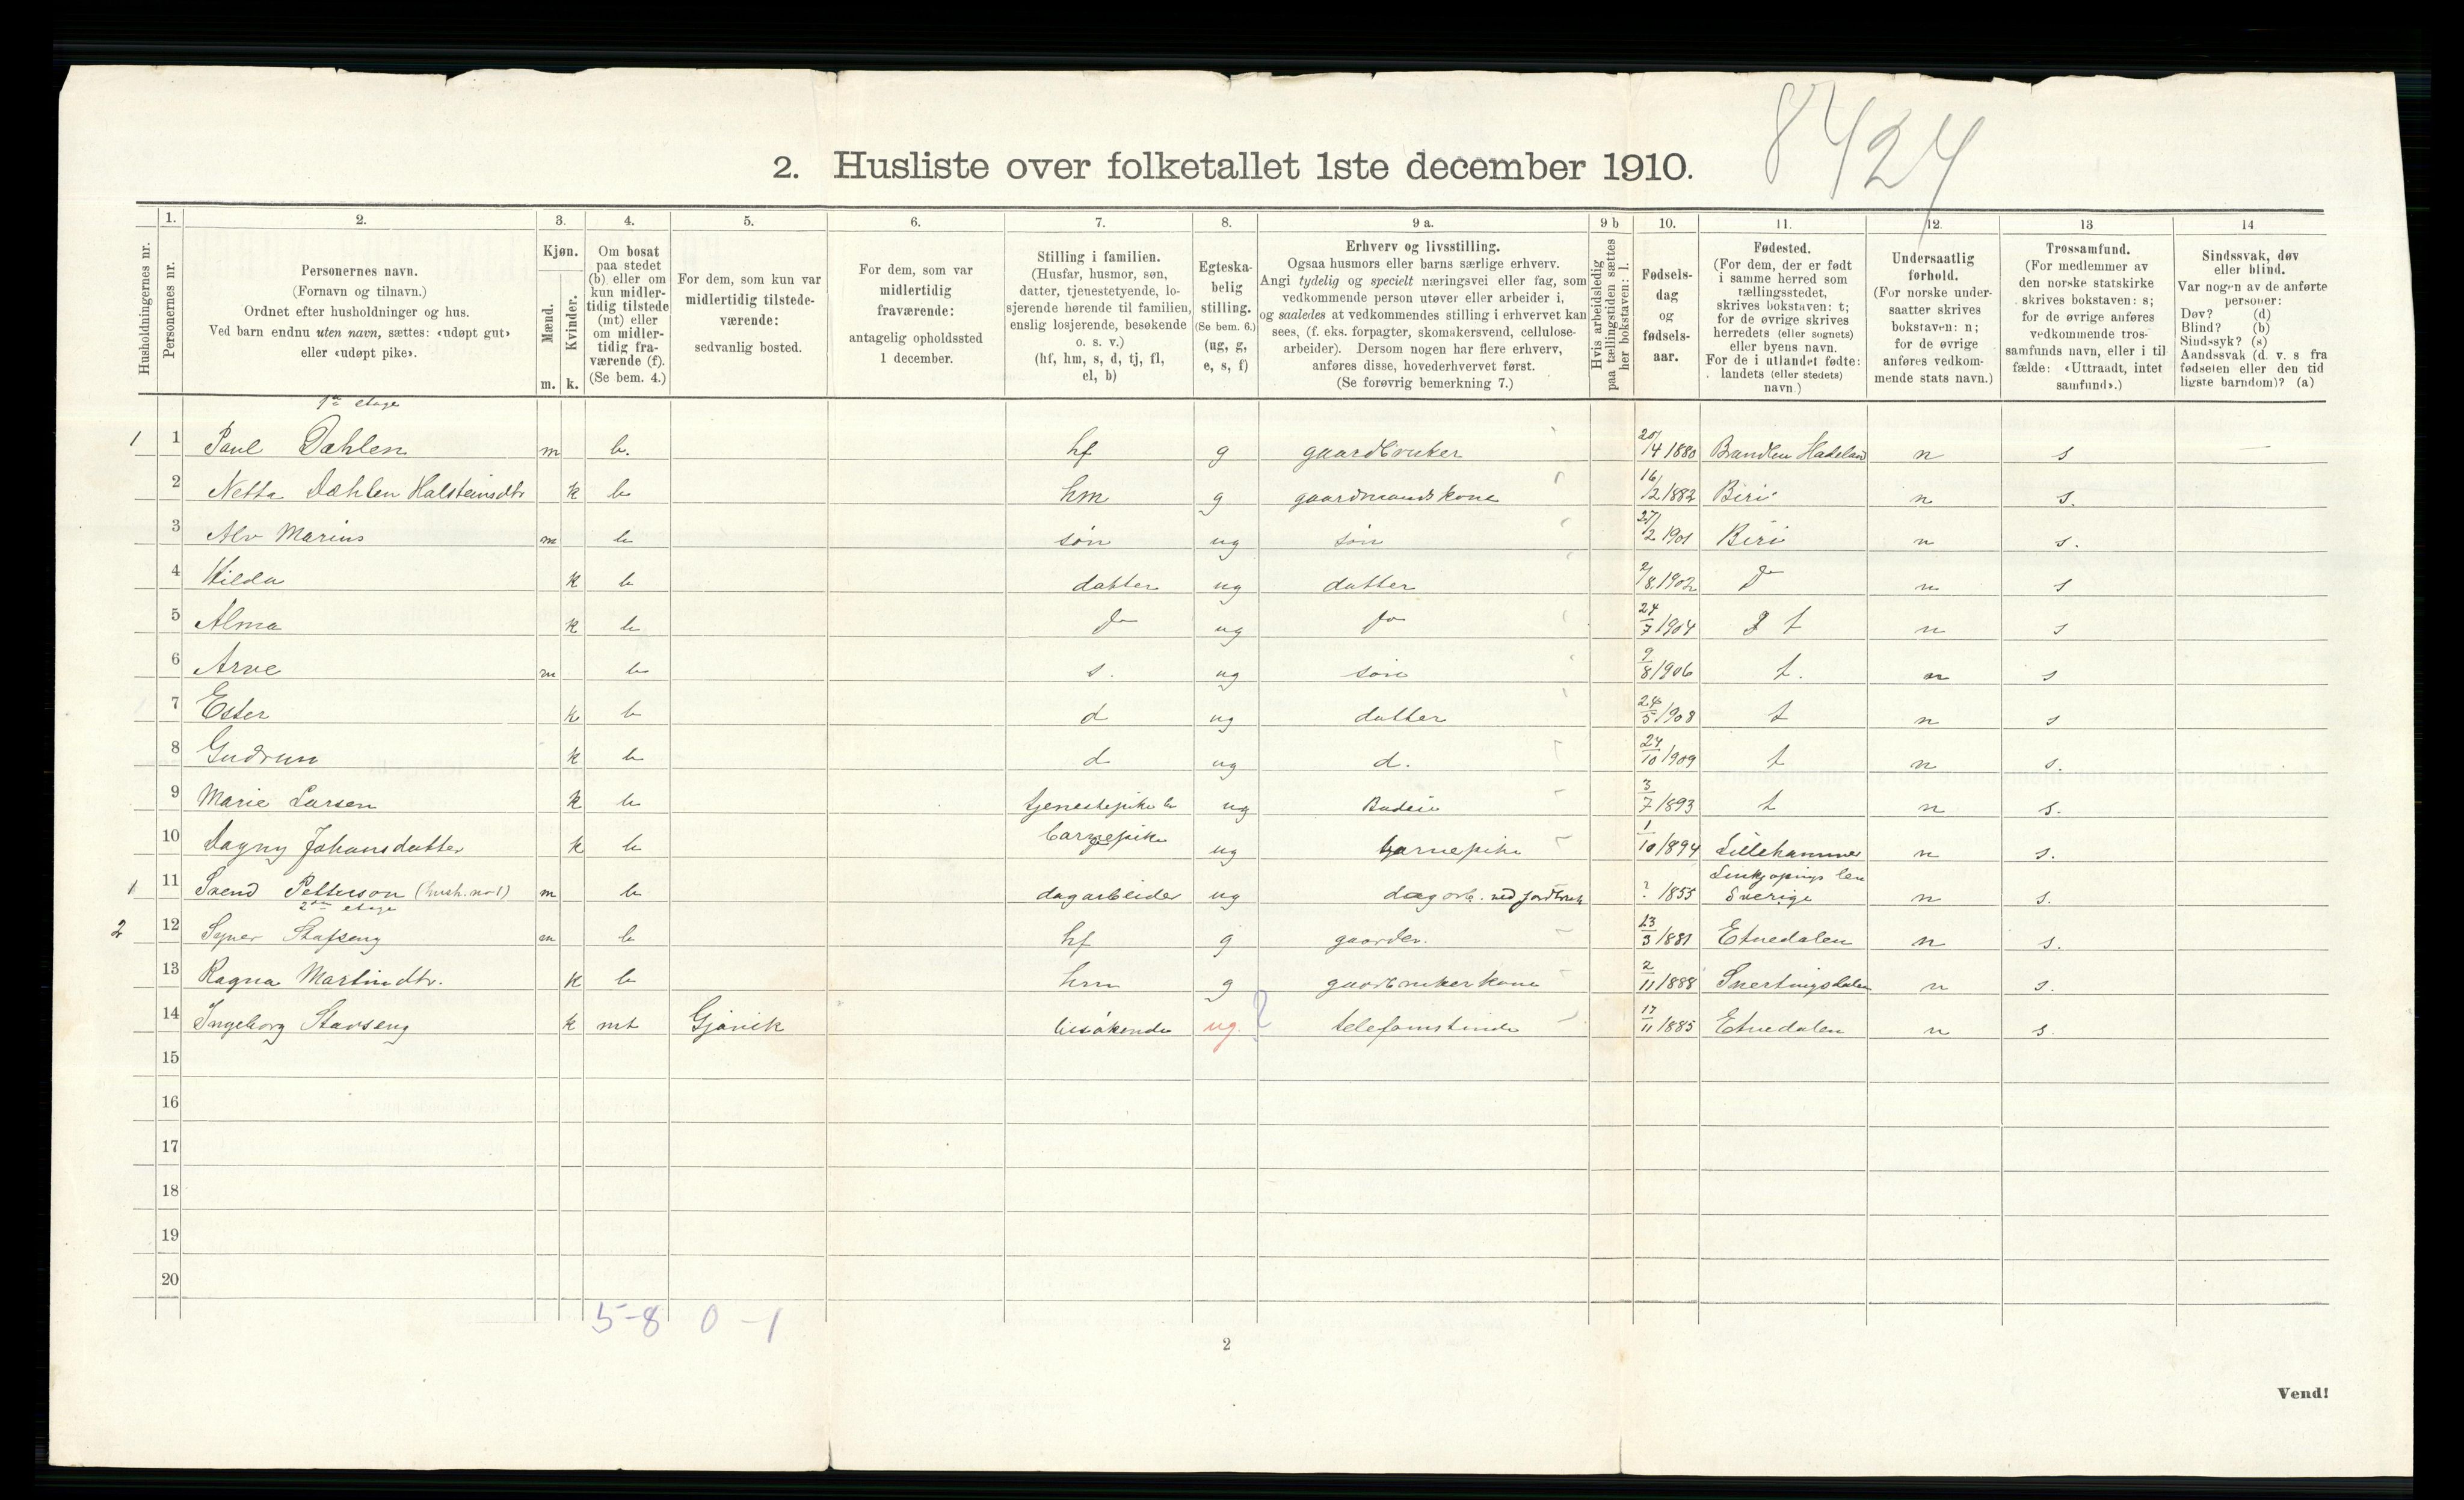 8424
2. Husliste over folketallet 1ste december 1910.
Husholdningernes nr.
1.
Personernes nr.
2.
Personernes navn.
(Fornavn og tilnavn.)
Ordnet efter husholdninger og hus.
Ved barn endnu uten navn, sættes: «udøpt gut»
eller «udøpt pike».
3.
Kjøn.
Mænd.
Kvinder.
m. k.
4.
Om bosat
paa stedet
(b) eller om
kun midler-
tidig tilstede
(mt) eller
om midler-
tidig fra-
værende (f).
(Se bem. 4.)
5.
For dem, som kun var
midlertidig tilstede-
værende:
sedvanlig bosted.
6.
For dem, som var
midlertidig
fraværende:
antagelig opholdssted
1 december.
7.
Stilling i familien.
(Husfar, husmor, søn,
datter, tjenestetyende, lo-
sjerende hørende til familien,
enslig losjerende, besøkende
o. s. v.)
(hf, hm, s, d, tj, fl,
el, b)
8.
Egteska-
belig
stilling.
(Se bem. 6.)
(ug, g,
e, s, f)
9 a.
Erhverv og livsstilling.
Ogsaa husmors eller barns særlige erhverv.
Angi tydelig og specielt næringsvei eller fag, som
vedkommende person utøver eller arbeider i,
og saaledes at vedkommendes stilling i erhvervet kan
sees, (f. eks. forpagter, skomakersvend, cellulose-
arbeider). Dersom nogen har flere erhverv,
anføres disse, hovederhvervet først.
(Se forøvrig bemerkning 7.)
9 b
Hvis arbeidsledig
paa tællingstiden sættes
her bokstaven: l.
10.
Fødsels-
dag
og
fødsels-
aar.
11.
Fødested.
(For dem, der er født
i samme herred som
tællingsstedet,
skrives bokstaven: t;
for de øvrige skrives
herredets (eller sognets)
eller byens navn.
For de i utlandet fødte:
landets (eller stedets)
navn.)
12.
Undersaatlig
forhold.
(For norske under-
saatter skrives
bokstaven: n;
for de øvrige
anføres vedkom-
mende stats navn.)
13
Trossamfund.
(For medlemmer av
den norske statskirke
skrives bokstaven: s;
for de øvrige anføres
vedkommende tros-
samfunds navn, eller i til-
fælde: «Uttraadt, intet
samfund».)
14
Sindssvak, døv
eller blind.
Var nogen av de anførte
personer:
Døv? (d)
Blind? (b)
Sindssyk? (s)
Aandssvak (d. v. s. fra
fødselen eller den tid-
ligste barndom)? (a)
1ste etage
1 1 Paul Dæhlen m b. hf g gaardbruker 20/4 1880 Brandbu Hadeland n s —
2 Netta Dæhlen Halsteinsdtr k b hm g gaardmandskone 16/2 1882 Biri n s.
3 Alv Marius m b søn ug søn 27/2 1901 Biri n s.
4 Hilda k b datter ug datter 2/8 1902 do n s
5 Alma k b do ug do 24/7 1904 t n s
6 Arve m b s. ug søn 9/8 1906 t. n s
7 Ester k b d ug datter 24/5 1908 t n s
8 Gudrun k b d ug d. 24/10 1909 t n s.
9 Marie Larsen k b tjenestepike ug Budeie 3/7 1893 t n s.
10 Dagny Johansdatter k b barnepike ug barnepike 1/10 1894 Lillehammer n s.
1 11 Svend Petterson (hush. no 1) m b dagarbeider ug dagarb. ved jordbruk ? 1855 Linkjøpings len Sverige n s.
2den etage
2 12 Syver Stafseng m b hf g gaardbr. 23/3 1881 Etnedalen n s.
13 Ragna Martindtr. k b hm g gaardbrukerkone 2/11 1888 Snertingdalen n s.
14 Ingeborg Stavseng k mt Gjøvik besøkende ug. ? telefonistinde 17/11 1885 Etnedalen n s.
15
16
17
18
19
20
5-8 0-1
2
Vend!